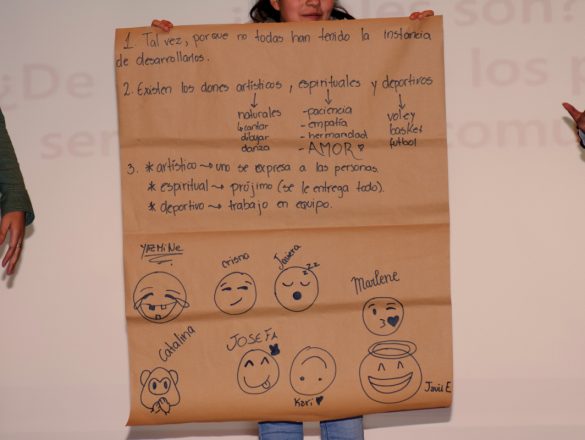 ¿Cuáles son?
¿De
los p
ser
comu
1. Tal vez, porque no todas han tenido la instancia
de desarrollarlos.
2. Existen los dones artísticos, espirituales y deportivos
naturales
cantar
dibujar
danza
-paciencia
-empatía
-hermandad
-AMOR
voley
basket
futbol
3. * artístico → uno se expresa a las personas.
* espiritual → prójimo (se le entrega todo).
* deportivo → trabajo en equipo.
YAZMiNe
Crisna
Javiera
zzz
Marlene
Catalina
JOSEFA
Kari
Javi E.